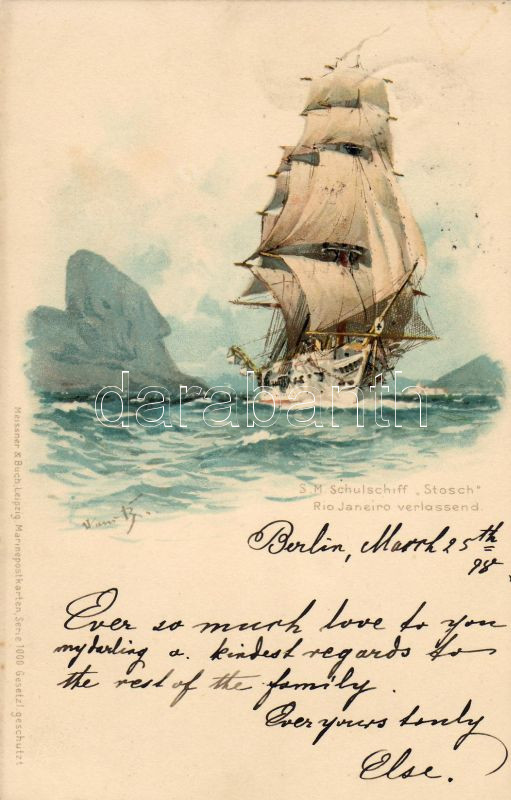 S. M. Schulschiff „Stosch"
Rio Janeiro verlassend.
Meissner & Buch, Leipzig, Marinepostkarten, Serie 1000 Gesetzl. geschützt
darabanth
Berlin, March 25th
98.
Ever so much love to you
my darling a. kindest regards to
the rest of the family.
Ever yours tonly
Else.